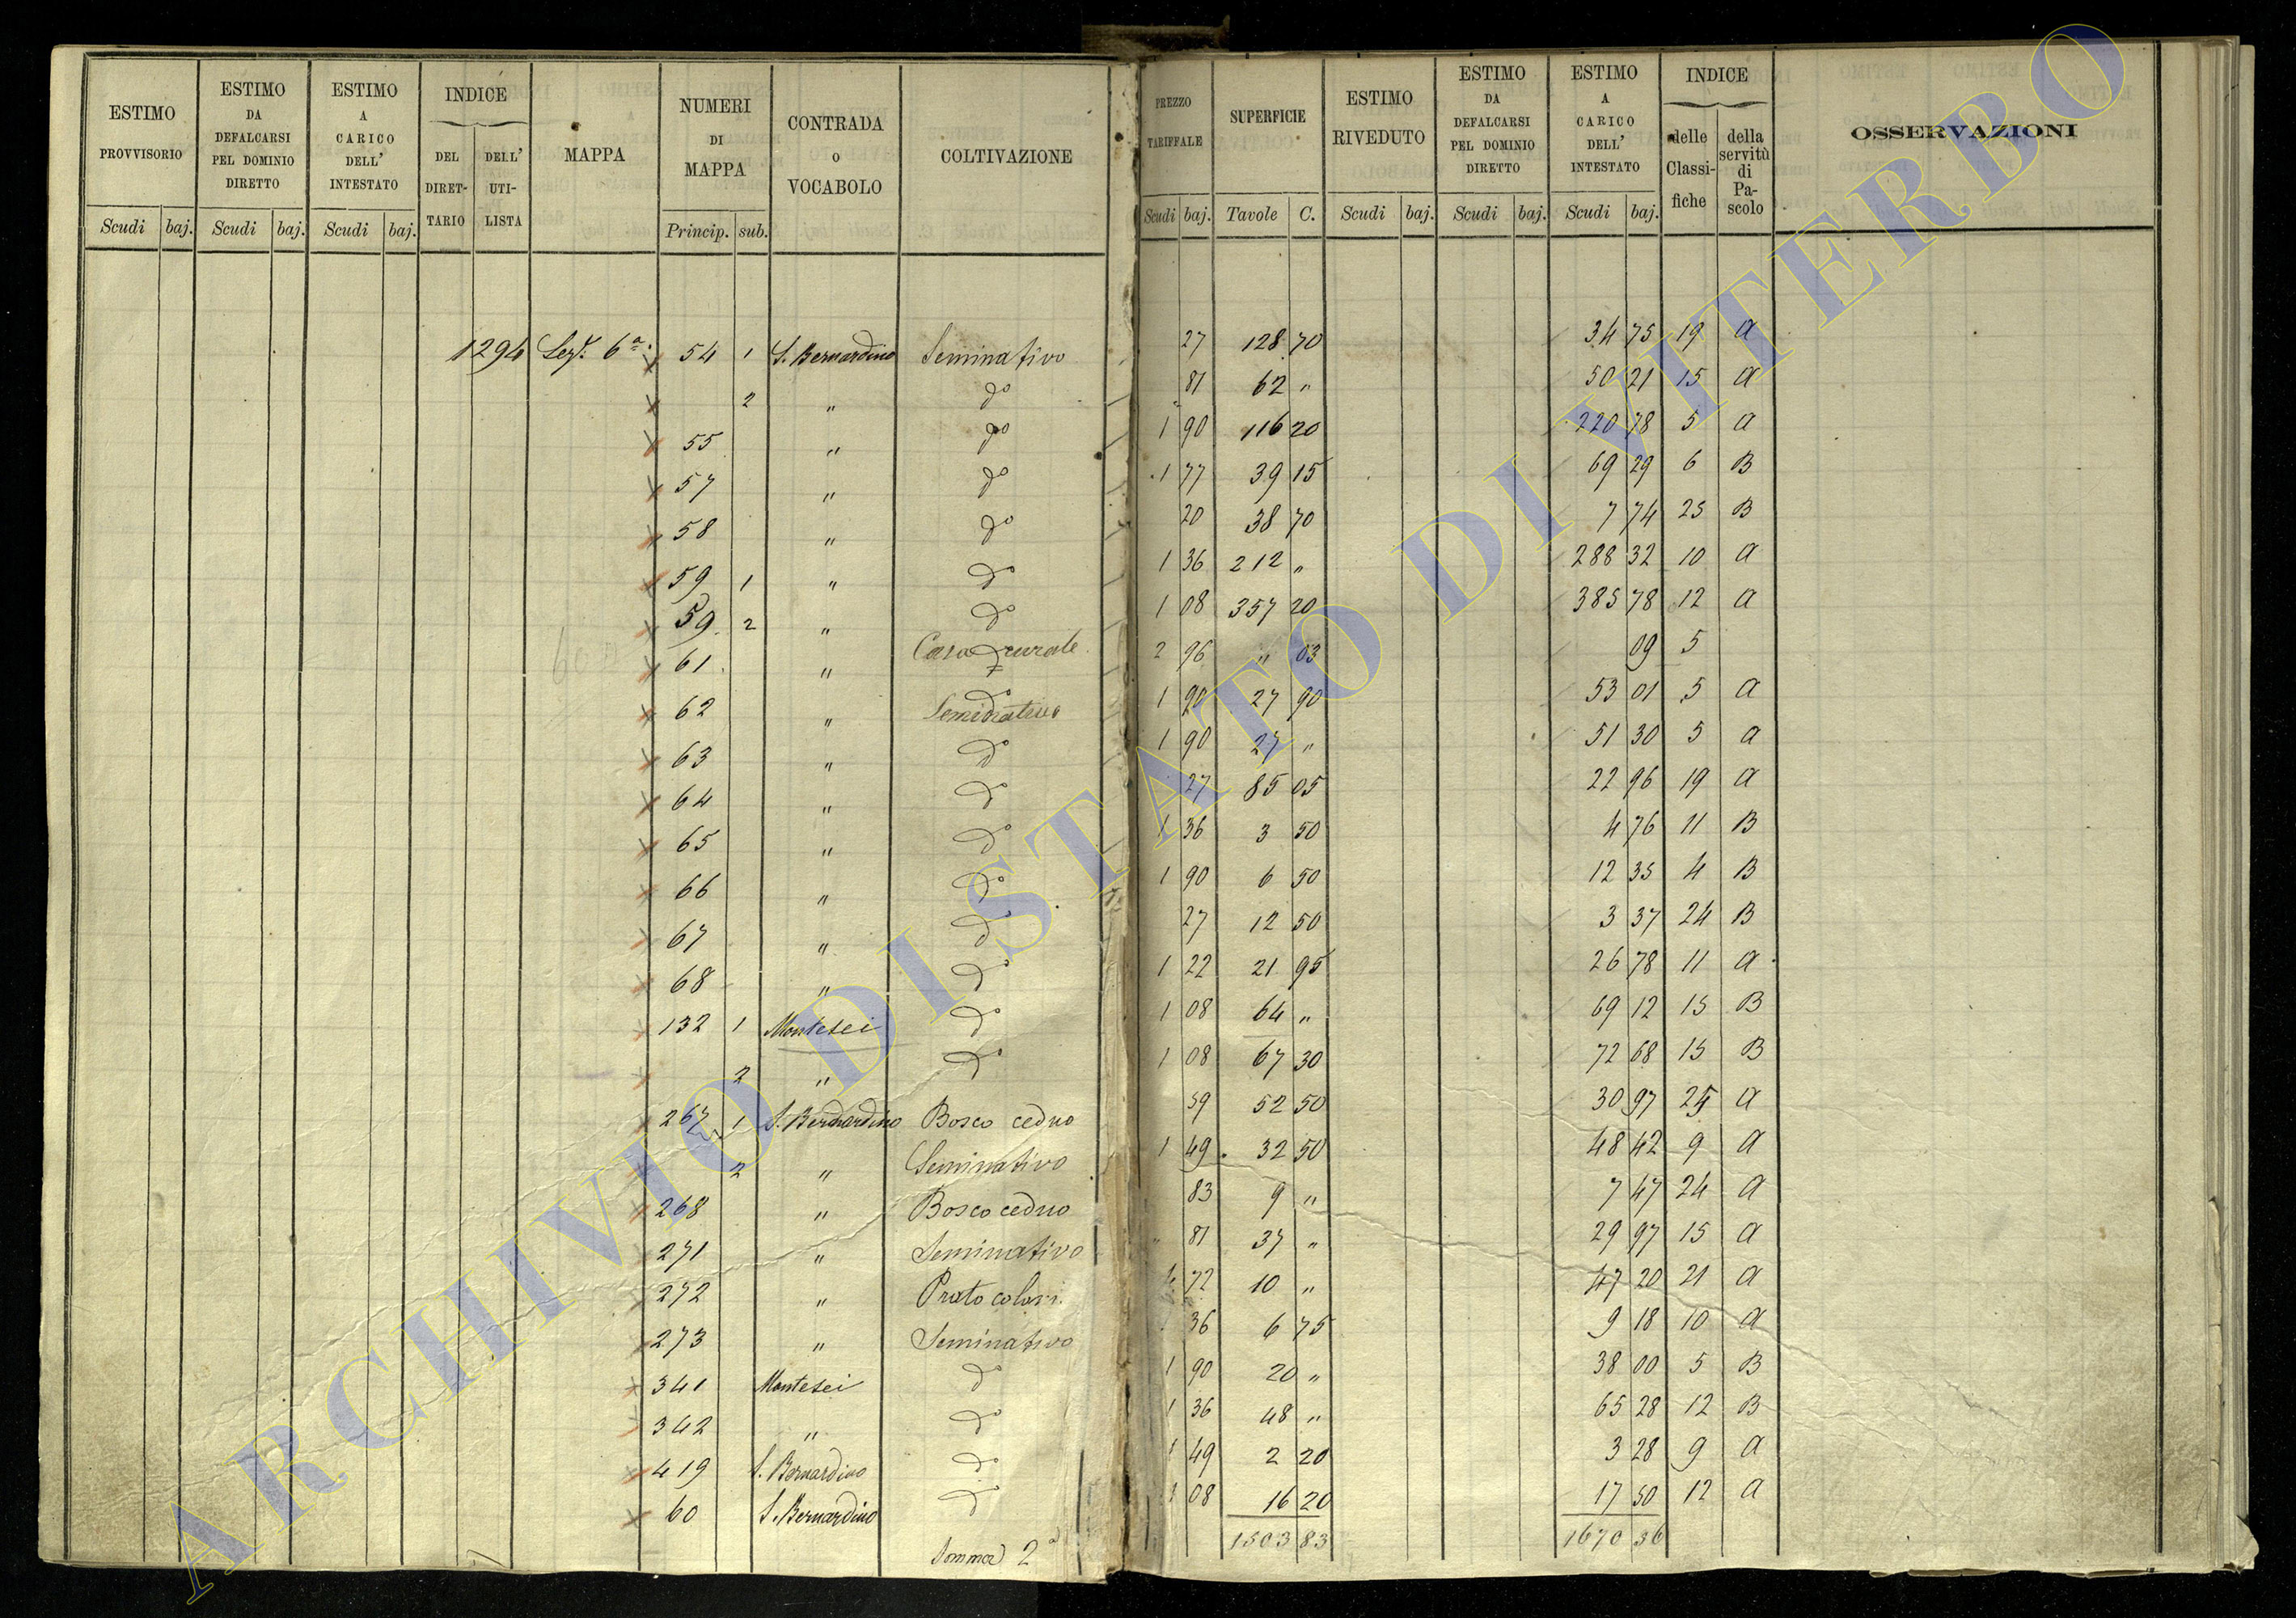 ESTIMO PROVVISORIO Scudi baj.
ESTIMO DA DEFALCARSI PEL DOMINIO DIRETTO Scudi baj.
ESTIMO A CARICO DELL' INTESTATO Scudi baj.
INDICE DEL DIRET-TARIO DELL' UTI-LISTA
MAPPA
NUMERI DI MAPPA Princip. sub.
CONTRADA O VOCABOLO
COLTIVAZIONE
PREZZO TARIFFALE Scudi baj.
SUPERFICIE Tavole C.
ESTIMO RIVEDUTO Scudi baj.
ESTIMO DA DEFALCARSI PEL DOMINIO DIRETTO Scudi baj.
ESTIMO A CARICO DELL' INTESTATO Scudi baj.
INDICE delle Classi-fiche della servitù di Pa-scolo
OSSERVAZIONI
1294 Sez.e 6a 54 1 S. Bernardino Seminativo 27 128 70 34 75 19 a
2 " do " 81 62 " 50 21 15 a
55 " do 1 90 116 20 220 78 5 a
57 " do 1 77 39 15 69 29 6 B
58 " do 20 38 70 7 74 25 B
59 1 " do 1 36 212 " 288 32 10 a
59 2 " do 1 08 357 20 385 78 12 a
60
61 " Casa rurale 2 96 " 03 09 5
62 " Seminativo 1 90 27 90 53 01 5 a
63 " do 1 90 27 " 51 30 5 a
64 " do 27 85 05 22 96 19 a
65 " do 1 36 3 50 4 76 11 B
66 " do 1 90 6 50 12 35 4 B
67 " do 27 12 50 3 37 24 B
68 " do 1 22 21 95 26 78 11 a
132 1 Montesei do 1 08 64 " 69 12 15 B
2 " do 1 08 67 30 72 68 15 B
267 1 S. Bernardino Bosco ceduo 59 52 50 30 97 25 a
2 " Seminativo 1 49 32 50 48 42 9 a
268 " Bosco ceduo 83 9 " 7 47 24 a
271 " Seminativo " 81 37 " 29 97 15 a
272 " Prato colovi. 4 72 10 " 47 20 21 a
273 " Seminativo 36 6 75 9 18 10 a
341 Montesei do 1 90 20 " 38 00 5 B
342 " do 1 36 48 " 65 28 12 B
419 S. Bernardino do 1 49 2 20 3 28 9 a
60 S. Bernardino do 1 08 16 20 17 50 12 a
Somma 2a 1503 83 1670 36
ARCHIVIO DI STATO DI VITERBO